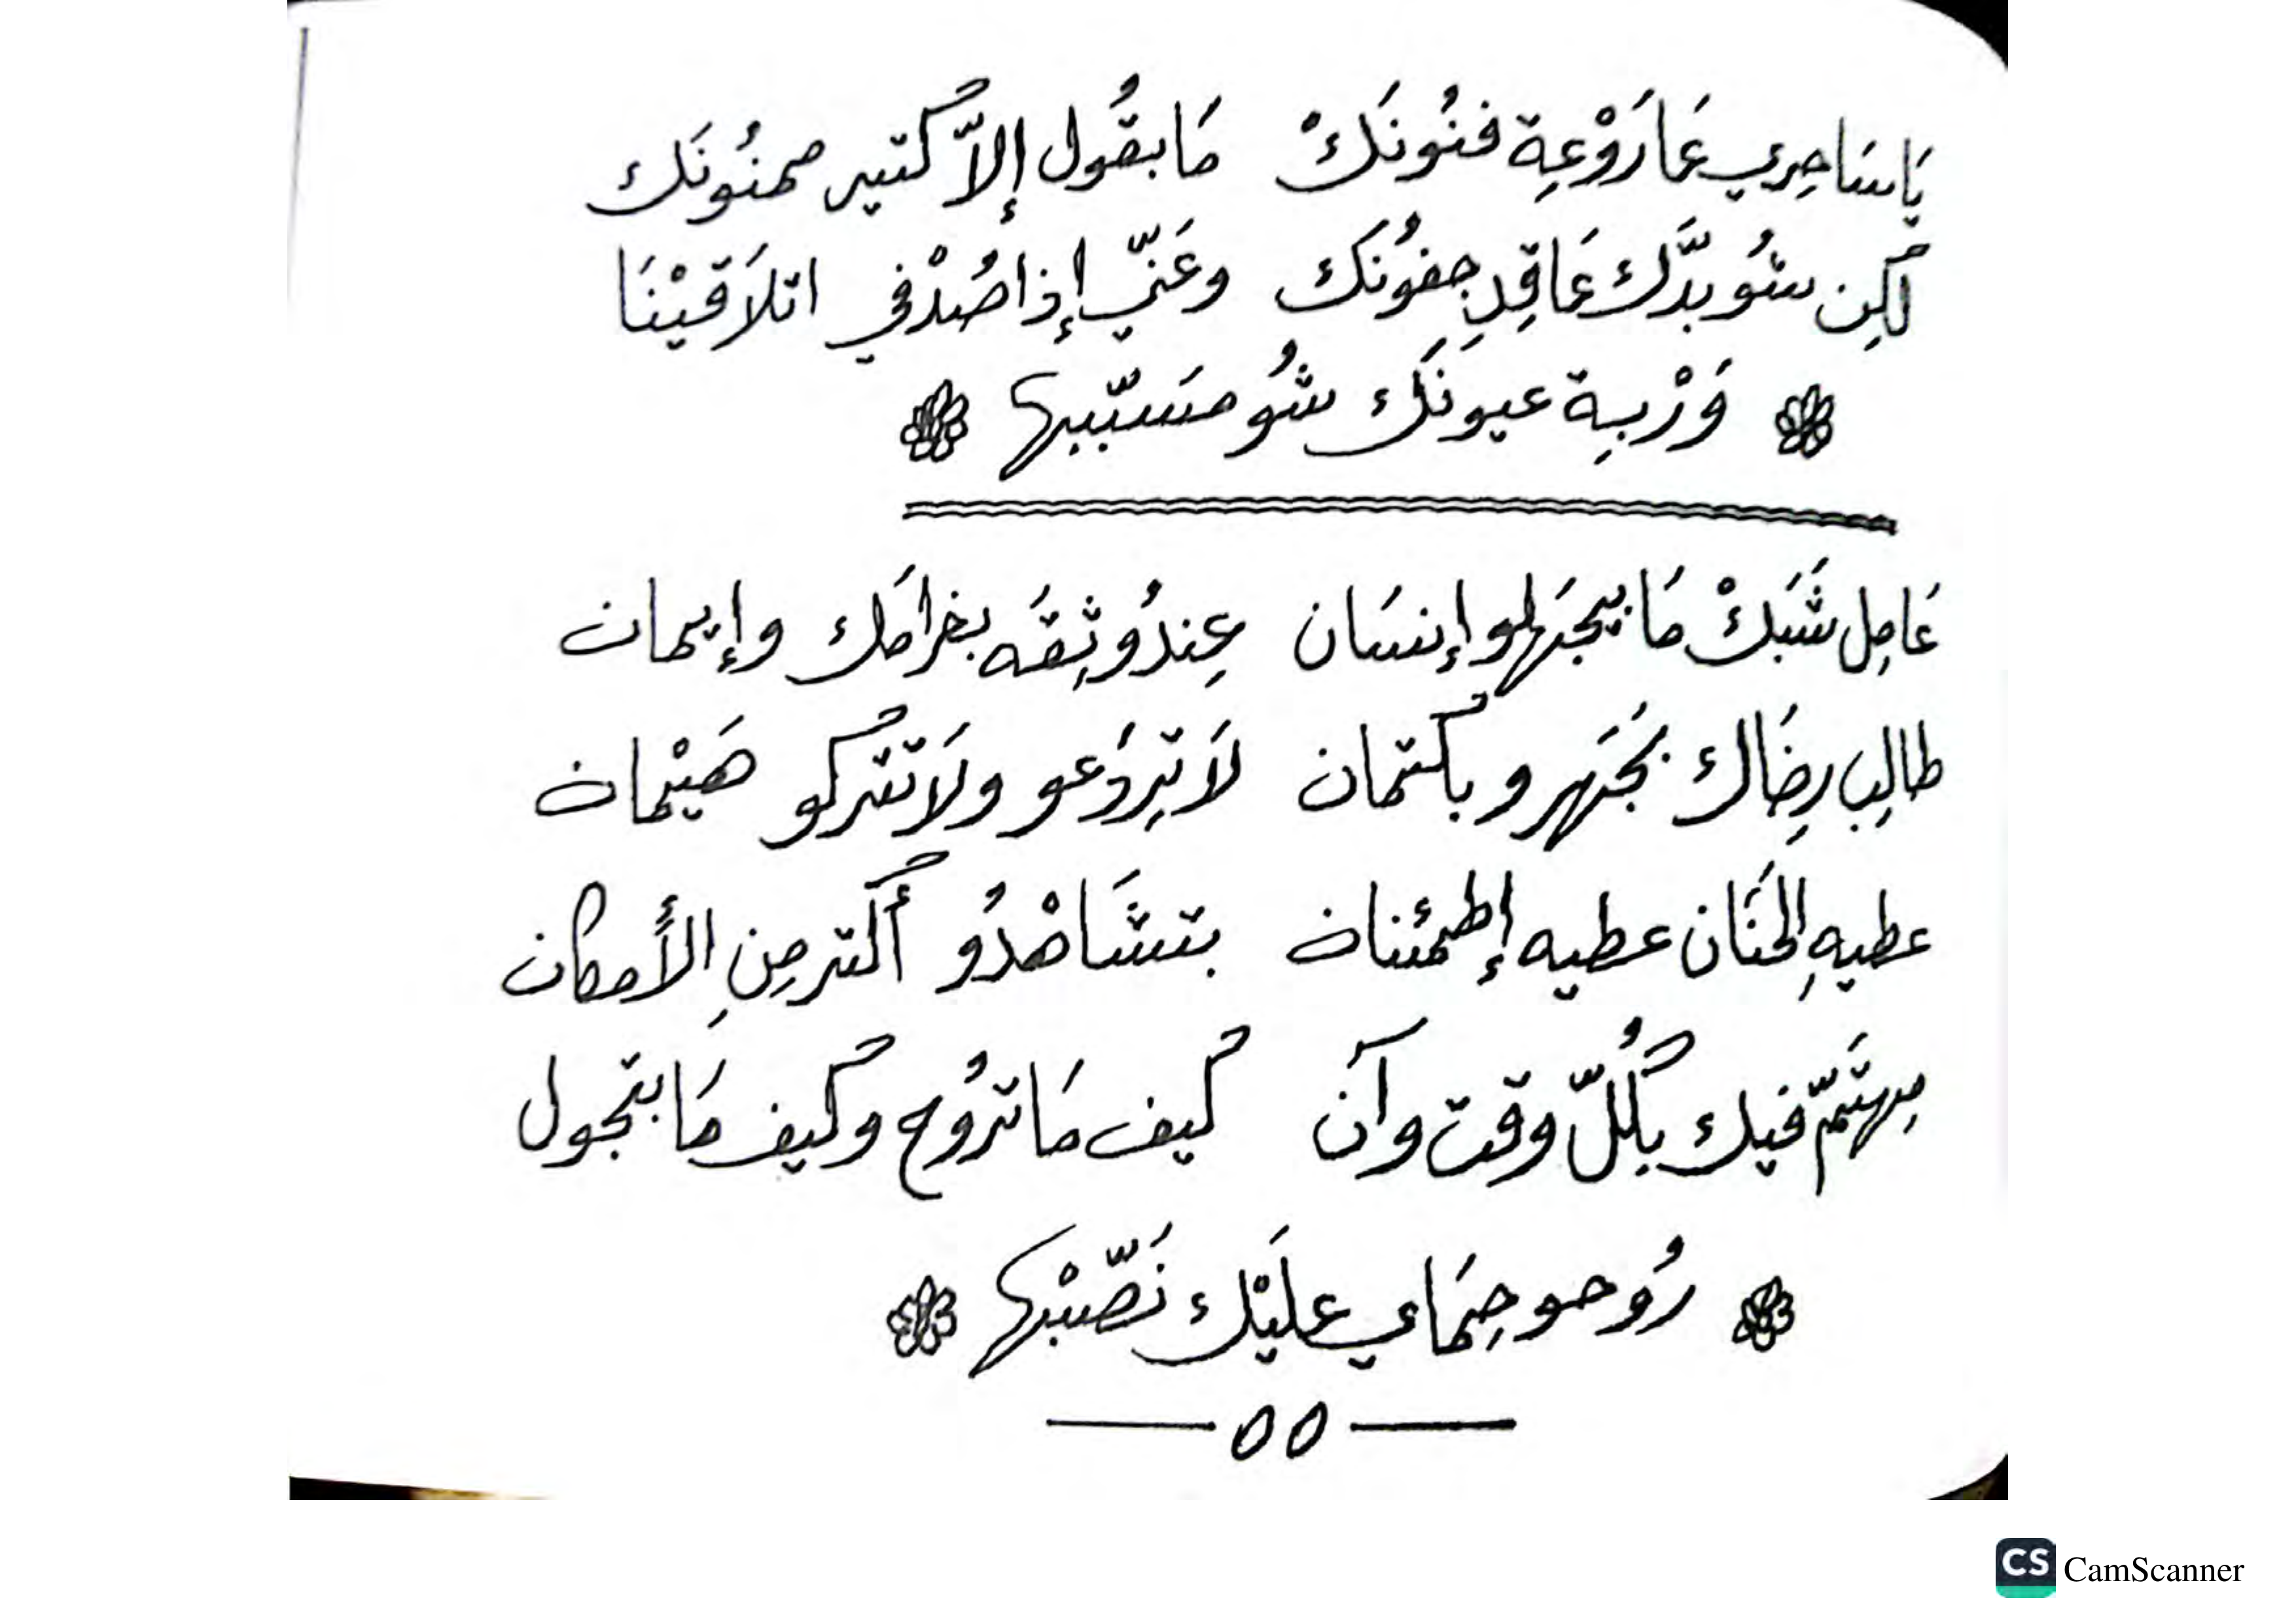 يَا سَاحِرِي عَا رَوْعِة فنُونَكْ مَا بقُول إلاّ كْتير ممنُونَك
لَكِن شُو بدَّك عَا قِدِ جفُونَك وعَنّي إذا صُدْفي اتلاَقيْنَا
وَرْبِة عيونَك شُو مسَبّبها
عَامِل شَبَكْ مَا بيجهَلو إنسَان عِندُو ثِقَه بغرامَك وإيمان
طالِب رِضَاك بجَهر وبكتمان لاَ تِردَعو ولاَ تتركو هَيْمان
عطيهِ الحَنَان عطيه إطمئنان بتشَاهْدُو أكتر مِنِ الأمكان
مِهتَمّ فيك بكُلّ وقت وآن كيف مَا تروُح وكيف مَا بتجول
رُوحو حِمَاي عليْك نَصّبْها
٥٥
CS CamScanner